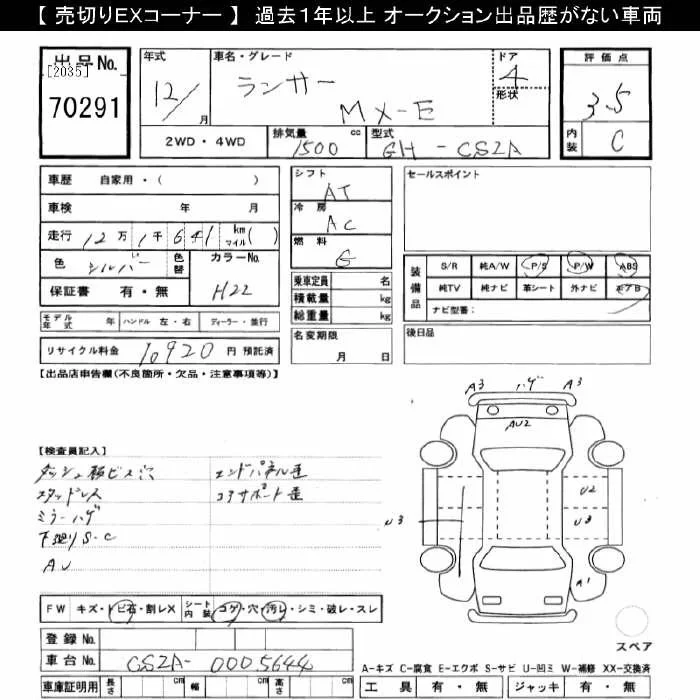 【 売切りEXコーナー 】 過去1年以上 オークション出品歴がない車両
出品No. [2035] 70291
年式 12/ 月
車名・グレード ランサー MX-E
ドア 4 形状
評価点 3.5
2WD・4WD 排気量 1500 cc 型式 GH-CS2A
内装 C
車歴 自家用・( )
車検 年 月
走行 12万1千641 km マイル( )
色 シルバー 色替 カラーNo. H22
保証書 有・無
シフト AT
冷房 AC
燃料 G
乗車定員 名
積載量 kg
総重量 kg
名変期限 月 日
セールスポイント
装備品 S/R 純A/W P/S P/W ABS
純TV 純ナビ 革シート 外ナビ エアB
ナビ型番:
後日品
モデル年式 年 ハンドル 左・右 ディーラー・並行
リサイクル料金 10920 円 預託済
【出品店申告欄(不良箇所・欠品・注意事項等)】
A3 ハゲ A3
AU2
【検査員記入】
ダッシュ板ビス穴 エンドパネル歪
スタッドレス コアサポート歪
ミラーハゲ
下廻りS-C
AU
U2
U3 U3
A1
FW キズ・トビ石・割レX シート内装 コゲ・穴・汚レ・シミ・破レ・スレ
登録No.
車台No. CS2A-0005644
車庫証明用 長さ cm 幅 cm 高さ cm
スペア
A-キズ C-腐食 E-エクボ S-サビ U-凹ミ W-補修 XX-交換済
工具 有・無 ジャッキ 有・無